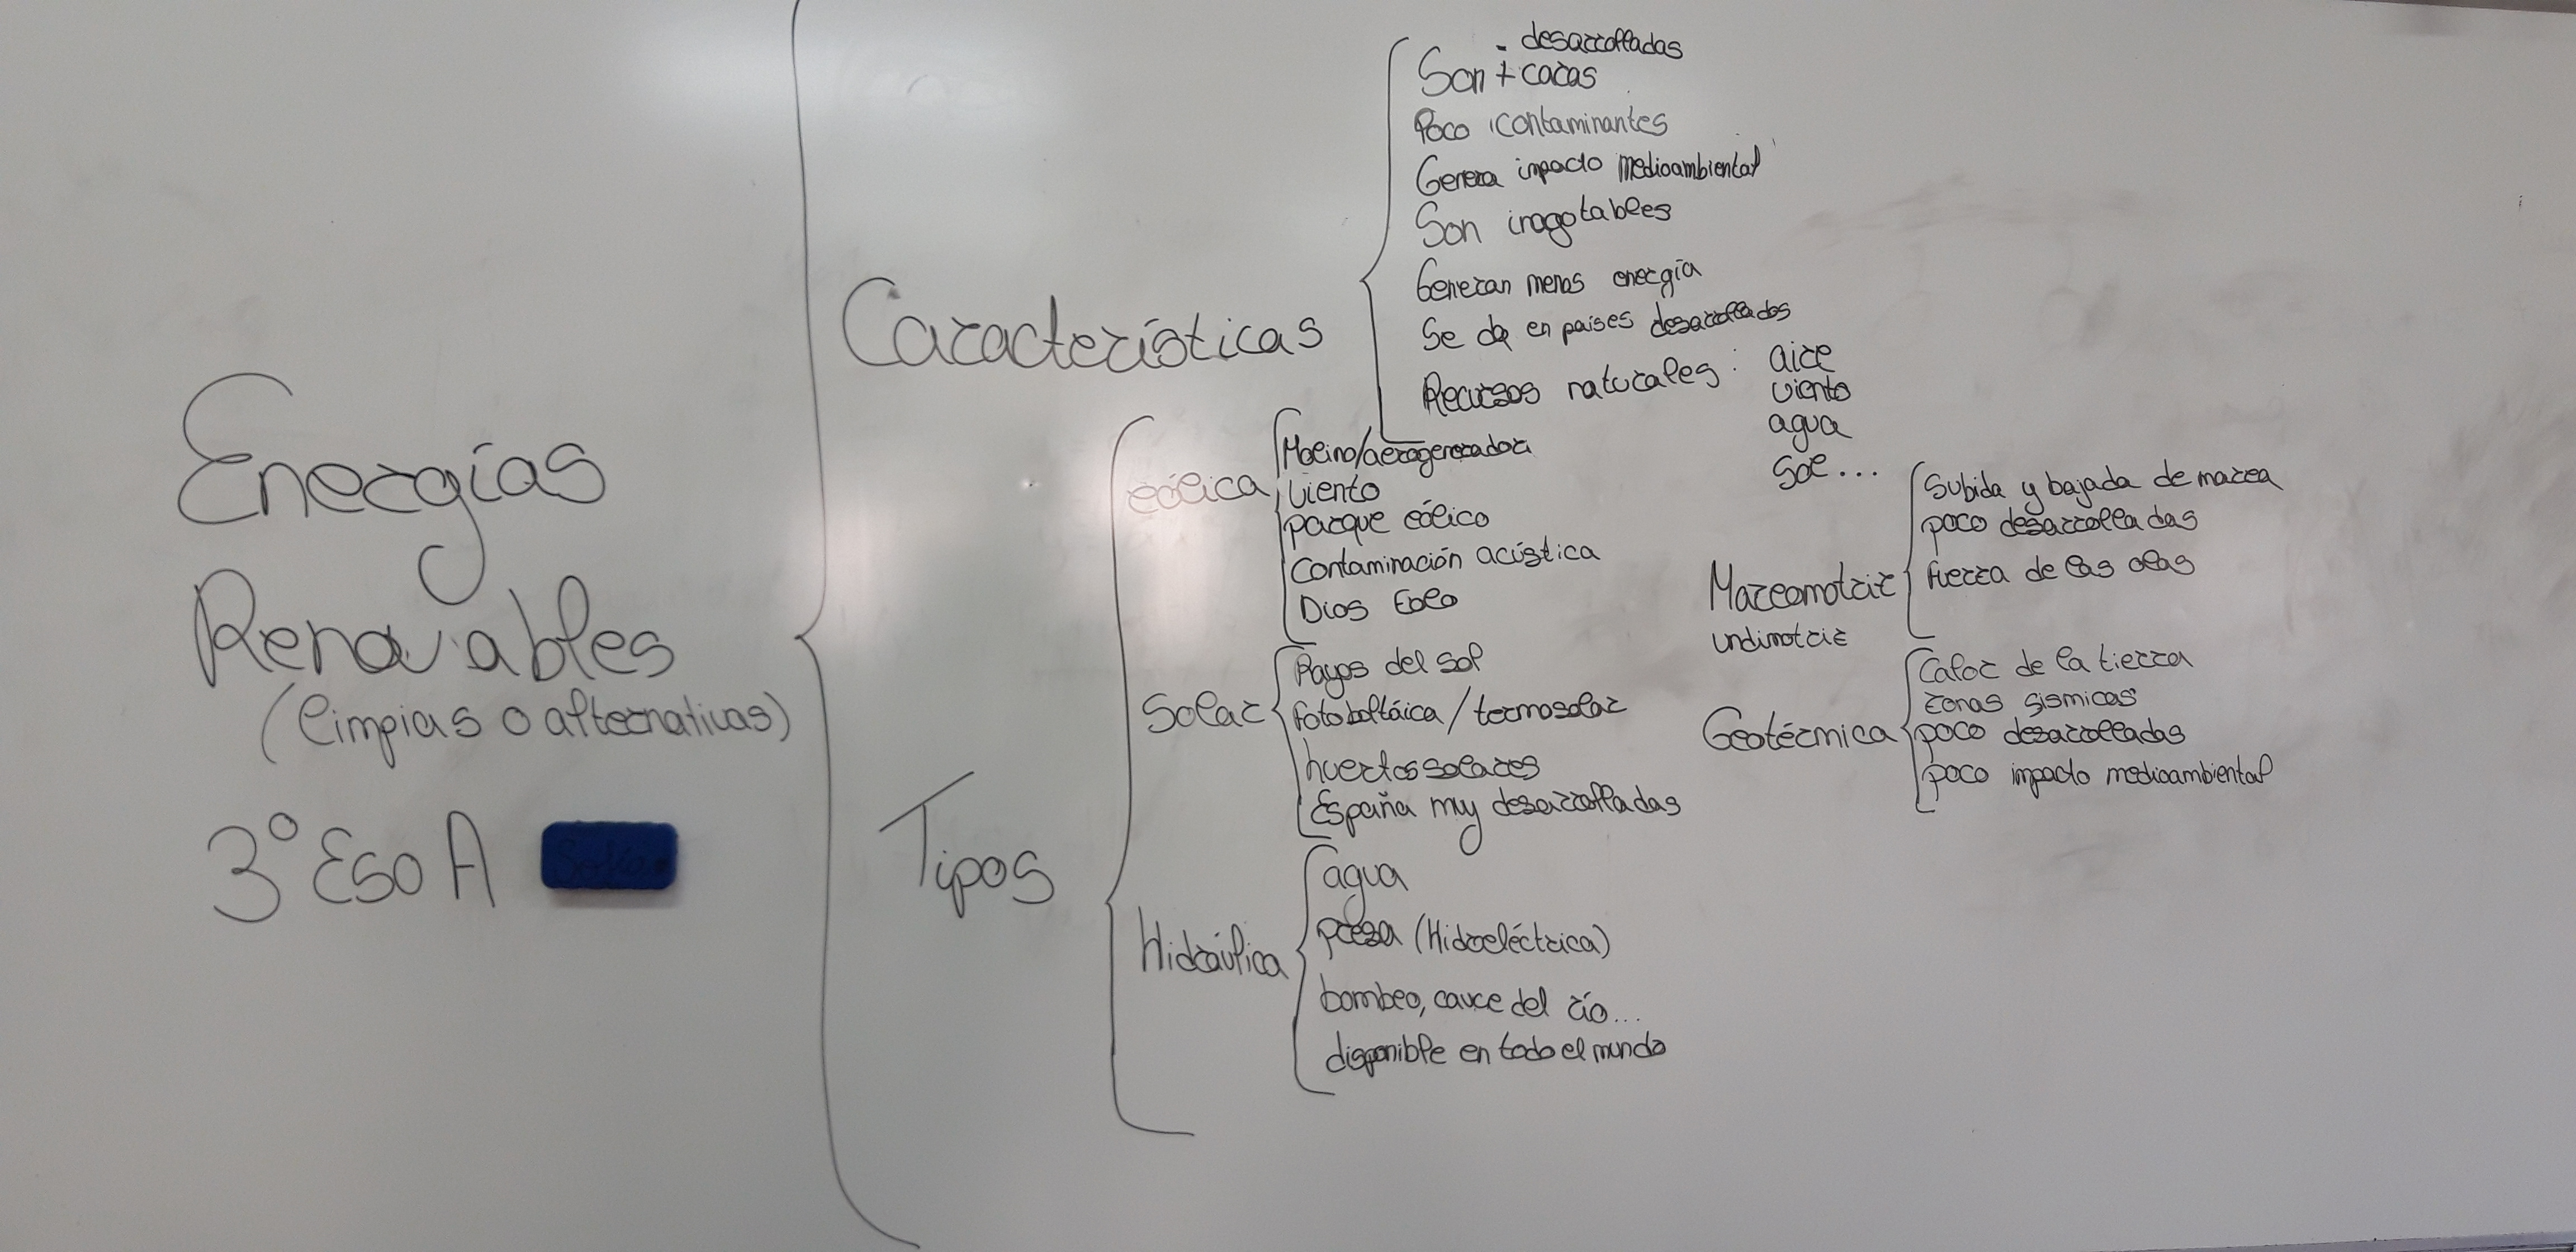 Energías
Renovables
(limpias o alternativas)
3º ESO A
Características
- desarrolladas
Son + caras
Poco contaminantes
Genera impacto medioambiental
Son inagotables
Generan menos energía
Se da en países desarrollados
Recursos naturales: aire
viento
agua
sol...
Tipos
eólica
Molino/aerogenerador
viento
parque eólico
Contaminación acústica
Dios Eolo
Solar
Rayos del sol
fotoboltáica/termosolar
huertos solares
España muy desarrolladas
Hidráulica
agua
presa (Hidroeléctrica)
bombeo, cauce del río...
disponible en todo el mundo
Mareomotriz
undimotriz
Subida y bajada de marea
poco desarrolladas
fuerza de las olas
Geotérmica
Calor de la tierra
zonas sismicas
poco desarrolladas
poco impacto medioambiental